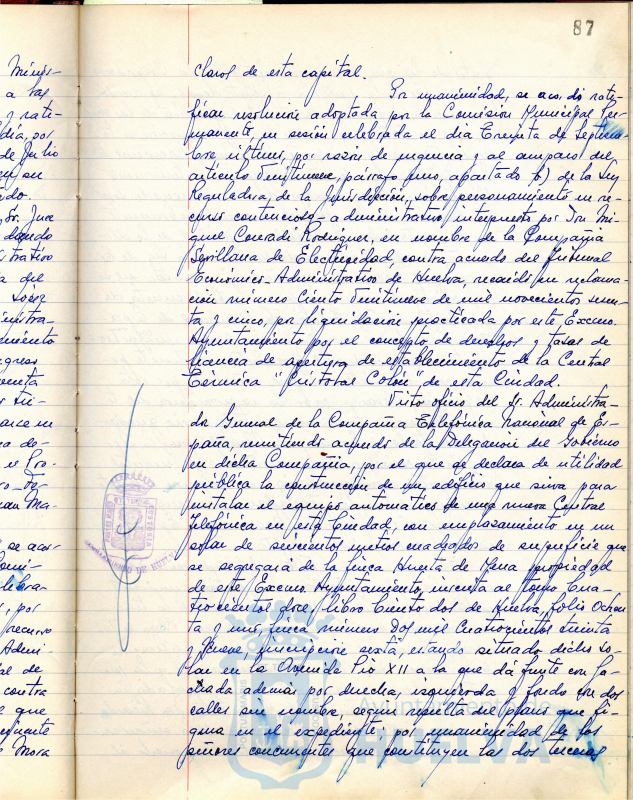 87
claros de esta capital.
Por unanimidad, se acordó rati-
ficar resolución adoptada por la Comisión Municipal Per-
manente, en sesión celebrada el día treinta de Septiem-
bre último, por razón de urgencia y al amparo del
artículo Veintinueve, párrafo uno, apartado b) de la Ley
Reguladora, de la Jurisdicción, sobre personamiento en re-
curso contencioso-administrativo interpuesto por Don Mi-
guel Conradi Rodríguez, en nombre de la Compañía
Sevillana de Electricidad, contra acuerdo del Tribunal
Económico-Administrativo de Huelva, recaído en reclama-
ción número Ciento Veintinueve de mil novecientos sesen-
ta y cinco, por liquidación practicada por este Excmo.
Ayuntamiento por el concepto de derechos y tasas de
licencia de apertura de establecimiento de la Central
Térmica "Cristobal Colón" de esta Ciudad.
Visto oficio del Sr. Administra-
dor General de la Compañía Telefónica Nacional de Es-
paña, remitiendo acuerdo de la Delegación del Gobierno
en dicha Compañía, por el que se declara de utilidad
pública la construcción de un edificio que sirva para
instalar el equipo automático de una nueva Central
Telefónica en esta Ciudad, con emplazamiento en un
solar de seiscientos metros cuadrados de superficie que
se segregará de la finca Huerta de Mena propiedad
de este Excmo. Ayuntamiento, inscrita al tomo Cua-
trocientos doce, libro Ciento dos de Huelva, folio Ochen-
ta y uno, finca número Dos mil Cuatrocientos treinta
y Nueve, inscripción sexta, estando situado dicho so-
lar en la Avenida Pío XII a la que dá frente con fa-
chada además por derecha, izquierda y fondo con dos
calles sin nombre, según resulta del plano que fi-
gura en el expediente; por unanimidad de los
señores concurrentes que constituyen las dos terceras